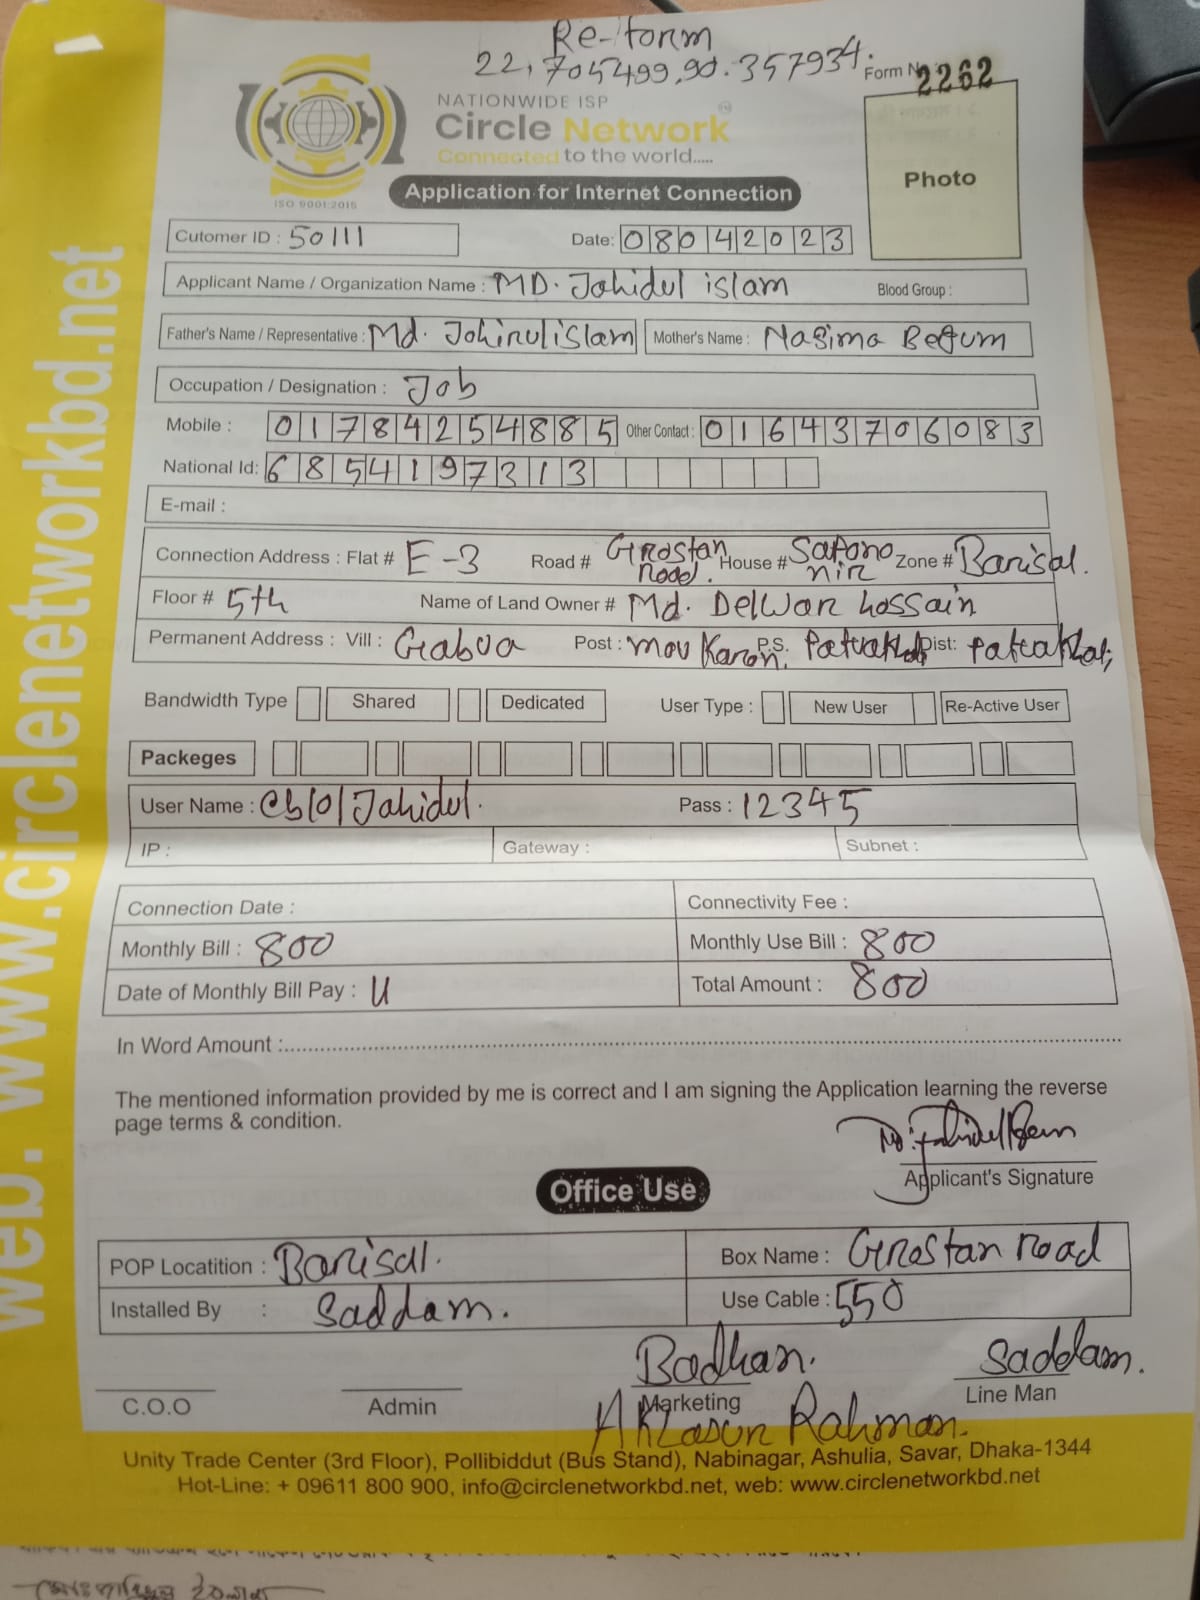 Re-form
22,705499,90.357934.
Form No 2262
NATIONWIDE ISP
Circle Network
Connected to the world.....
ISO 9001:2015
Photo
Application for Internet Connection
Cutomer ID : 50111 Date: 08042023
Applicant Name / Organization Name : MD. Jahidul islam Blood Group :
Father's Name / Representative : Md. Jahirul islam Mother's Name : Nasima Begum
Occupation / Designation : Job
Mobile : 01784254885 Other Contact : 01643706083
National Id: 6854197313
E-mail :
Connection Address : Flat # E-3 Road # Grostan Road. House # Sapono nir Zone # Barisal.
Floor # 5th Name of Land Owner # Md. Delwar hossain
Permanent Address : Vill : Grabua Post : mou Karon, P.S. Patuakhali Dist: Patuakhali
Bandwidth Type Shared Dedicated User Type : New User Re-Active User
Packeges
User Name : cblol Jahidul. Pass : 12345
IP : Gateway : Subnet :
Connection Date : Connectivity Fee :
Monthly Bill : 800 Monthly Use Bill : 800
Date of Monthly Bill Pay : U Total Amount : 800
In Word Amount :
The mentioned information provided by me is correct and I am signing the Application learning the reverse
page terms & condition.
Applicant's Signature
Office Use
POP Locatition : Barisal. Box Name : Grostan road
Installed By : Saddam. Use Cable : 550
Badhan. Saddam.
C.O.O Admin Marketing Line Man
Rahman.
Unity Trade Center (3rd Floor), Pollibiddut (Bus Stand), Nabinagar, Ashulia, Savar, Dhaka-1344
Hot-Line: + 09611 800 900, info@circlenetworkbd.net, web: www.circlenetworkbd.net
web: www.circlenetworkbd.net